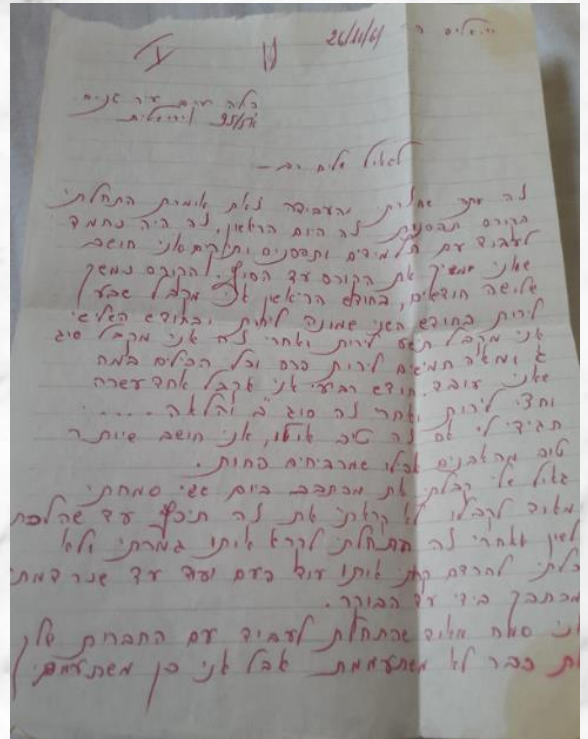 26/11/61
I
כלה
לגאולי שלום רב –
זה עתה שחזרתי מהעבודה זאת אומרת התחלתי
בקורס תפסנות זה היום הראשון, זה היה נחמד
לעבוד עם תלמידים ותפסנים ותיקים אני חושב
שאני אמשיך את הקורס עד הסוף. הקורס נמשך
שלושה חודשים, בחודש הראשון אני מקבל שבע
לירות בחודש השני שמונה לירות ובחודש השלישי
אני מקבל תשע לירות ואחרי זה אני מקבל סוג
ג ומאה חמישים לירות פרס וכל הכלים במה
שאני עובד. חודש רביעי אני אקבל אחד עשרה
וחצי לירות ואחרי זה סוג ב והלאה .....
תגידי לי אם זה טוב או לא, אני חושב שיותר
טוב מהאבנים אפילו שמרביחים פחות.
גאולי שלי קבלתי את מכתבך ביום ששי שמחתי
מאוד לקבלו לא קראתי את זה תיכף עד שהלכתי
לישון ואחרי זה התחלתי לקרא איתו גמרתי ולא
יכלתי להרדם קראתי איתו עוד פעם ועוד עד שנרדמתי
מכתבך בידי עד הבוקר.
אני שמח מאוד שהתחלת לעבוד עם החברות שלך
את כבר לא משתעממת אבל אני כן משתעמם